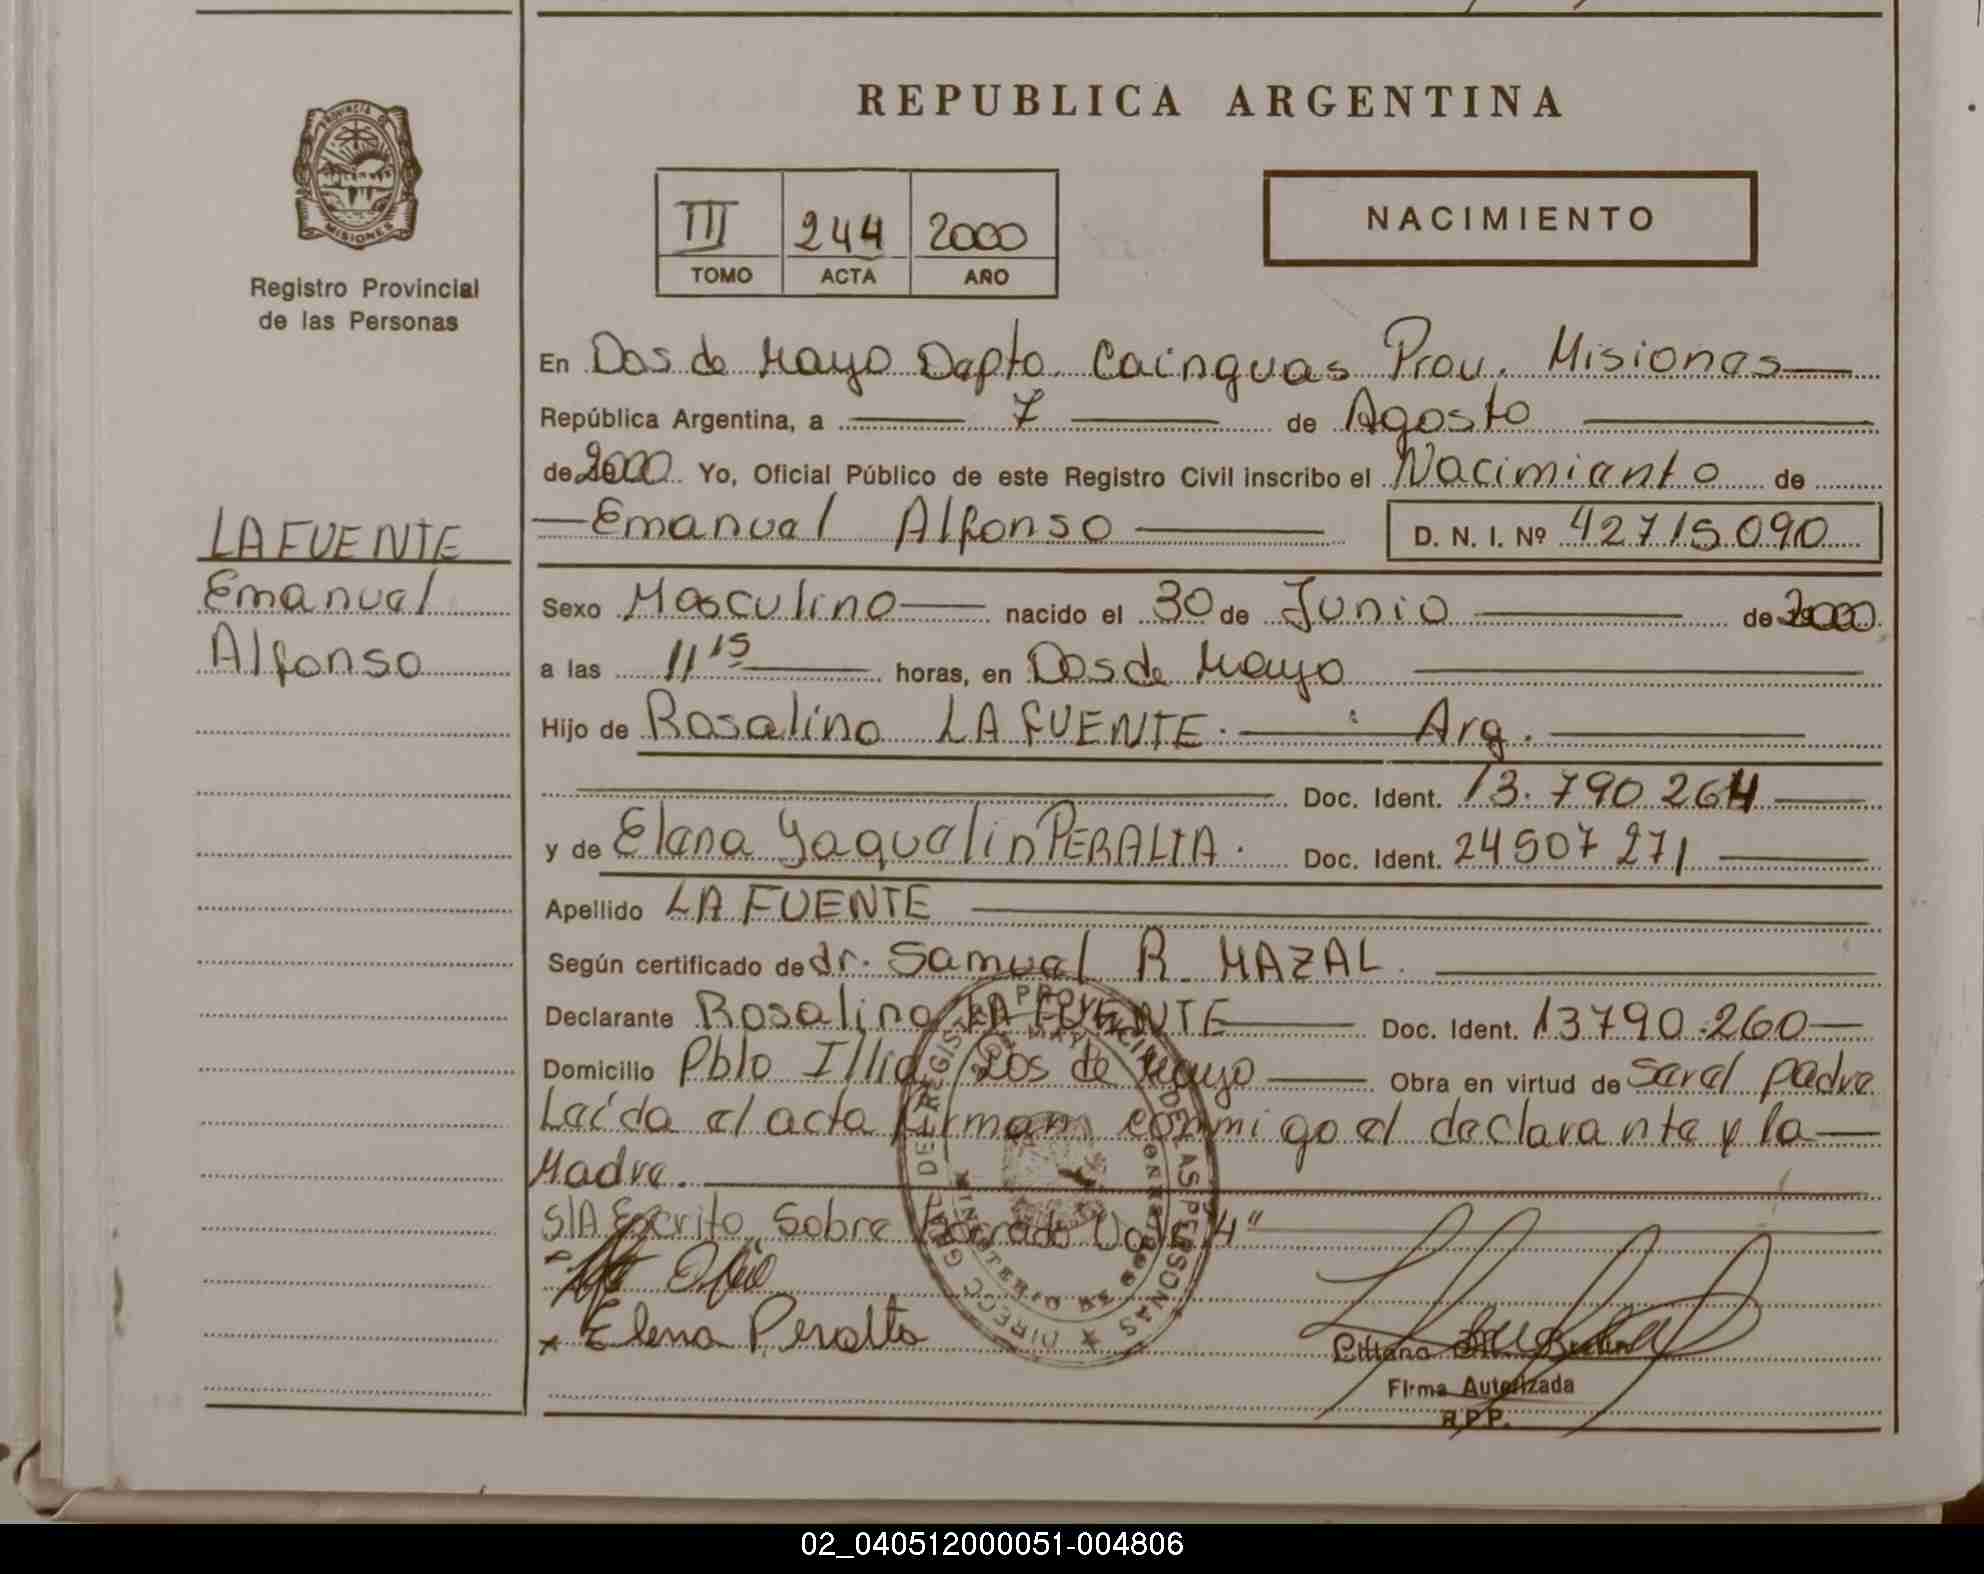 REPUBLICA ARGENTINA
PROVINCIA DE
MISIONES
Registro Provincial
de las Personas
III 244 2000
TOMO ACTA AÑO
NACIMIENTO
En Dos de Mayo Depto. Cainguas Prov. Misiones
República Argentina, a 7 de Agosto
de 2000 Yo, Oficial Público de este Registro Civil inscribo el Nacimiento de
Emanuel Alfonso D. N. I. Nº 42715090
LAFUENTE
Emanuel
Alfonso
Sexo Masculino nacido el 30 de Junio de 2000
a las 11 15 horas, en Dos de Mayo
Hijo de Rosalino LAFUENTE. Arg.
Doc. Ident. 13.790 264
y de Elena Yaquelin PERALTA. Doc. Ident. 24507 271
Apellido LAFUENTE
Según certificado de dr. Samuel R. MAZAL
Declarante Rosalino LAFUENTE Doc. Ident. 13790.260
Domicilio Pblo Illia Dos de Mayo Obra en virtud de ser el padre
Leída el acta firman conmigo el declarante y la
Madre.
S/A Escrito Sobre borrado Vale "4"
Elena Peralta
DIRECC. GRAL. DE REGISTRO PROVINCIAL DE LAS PERSONAS
MINISTERIO DE GOBIERNO
Firma Autorizada
R.P.P.
02_040512000051-004806